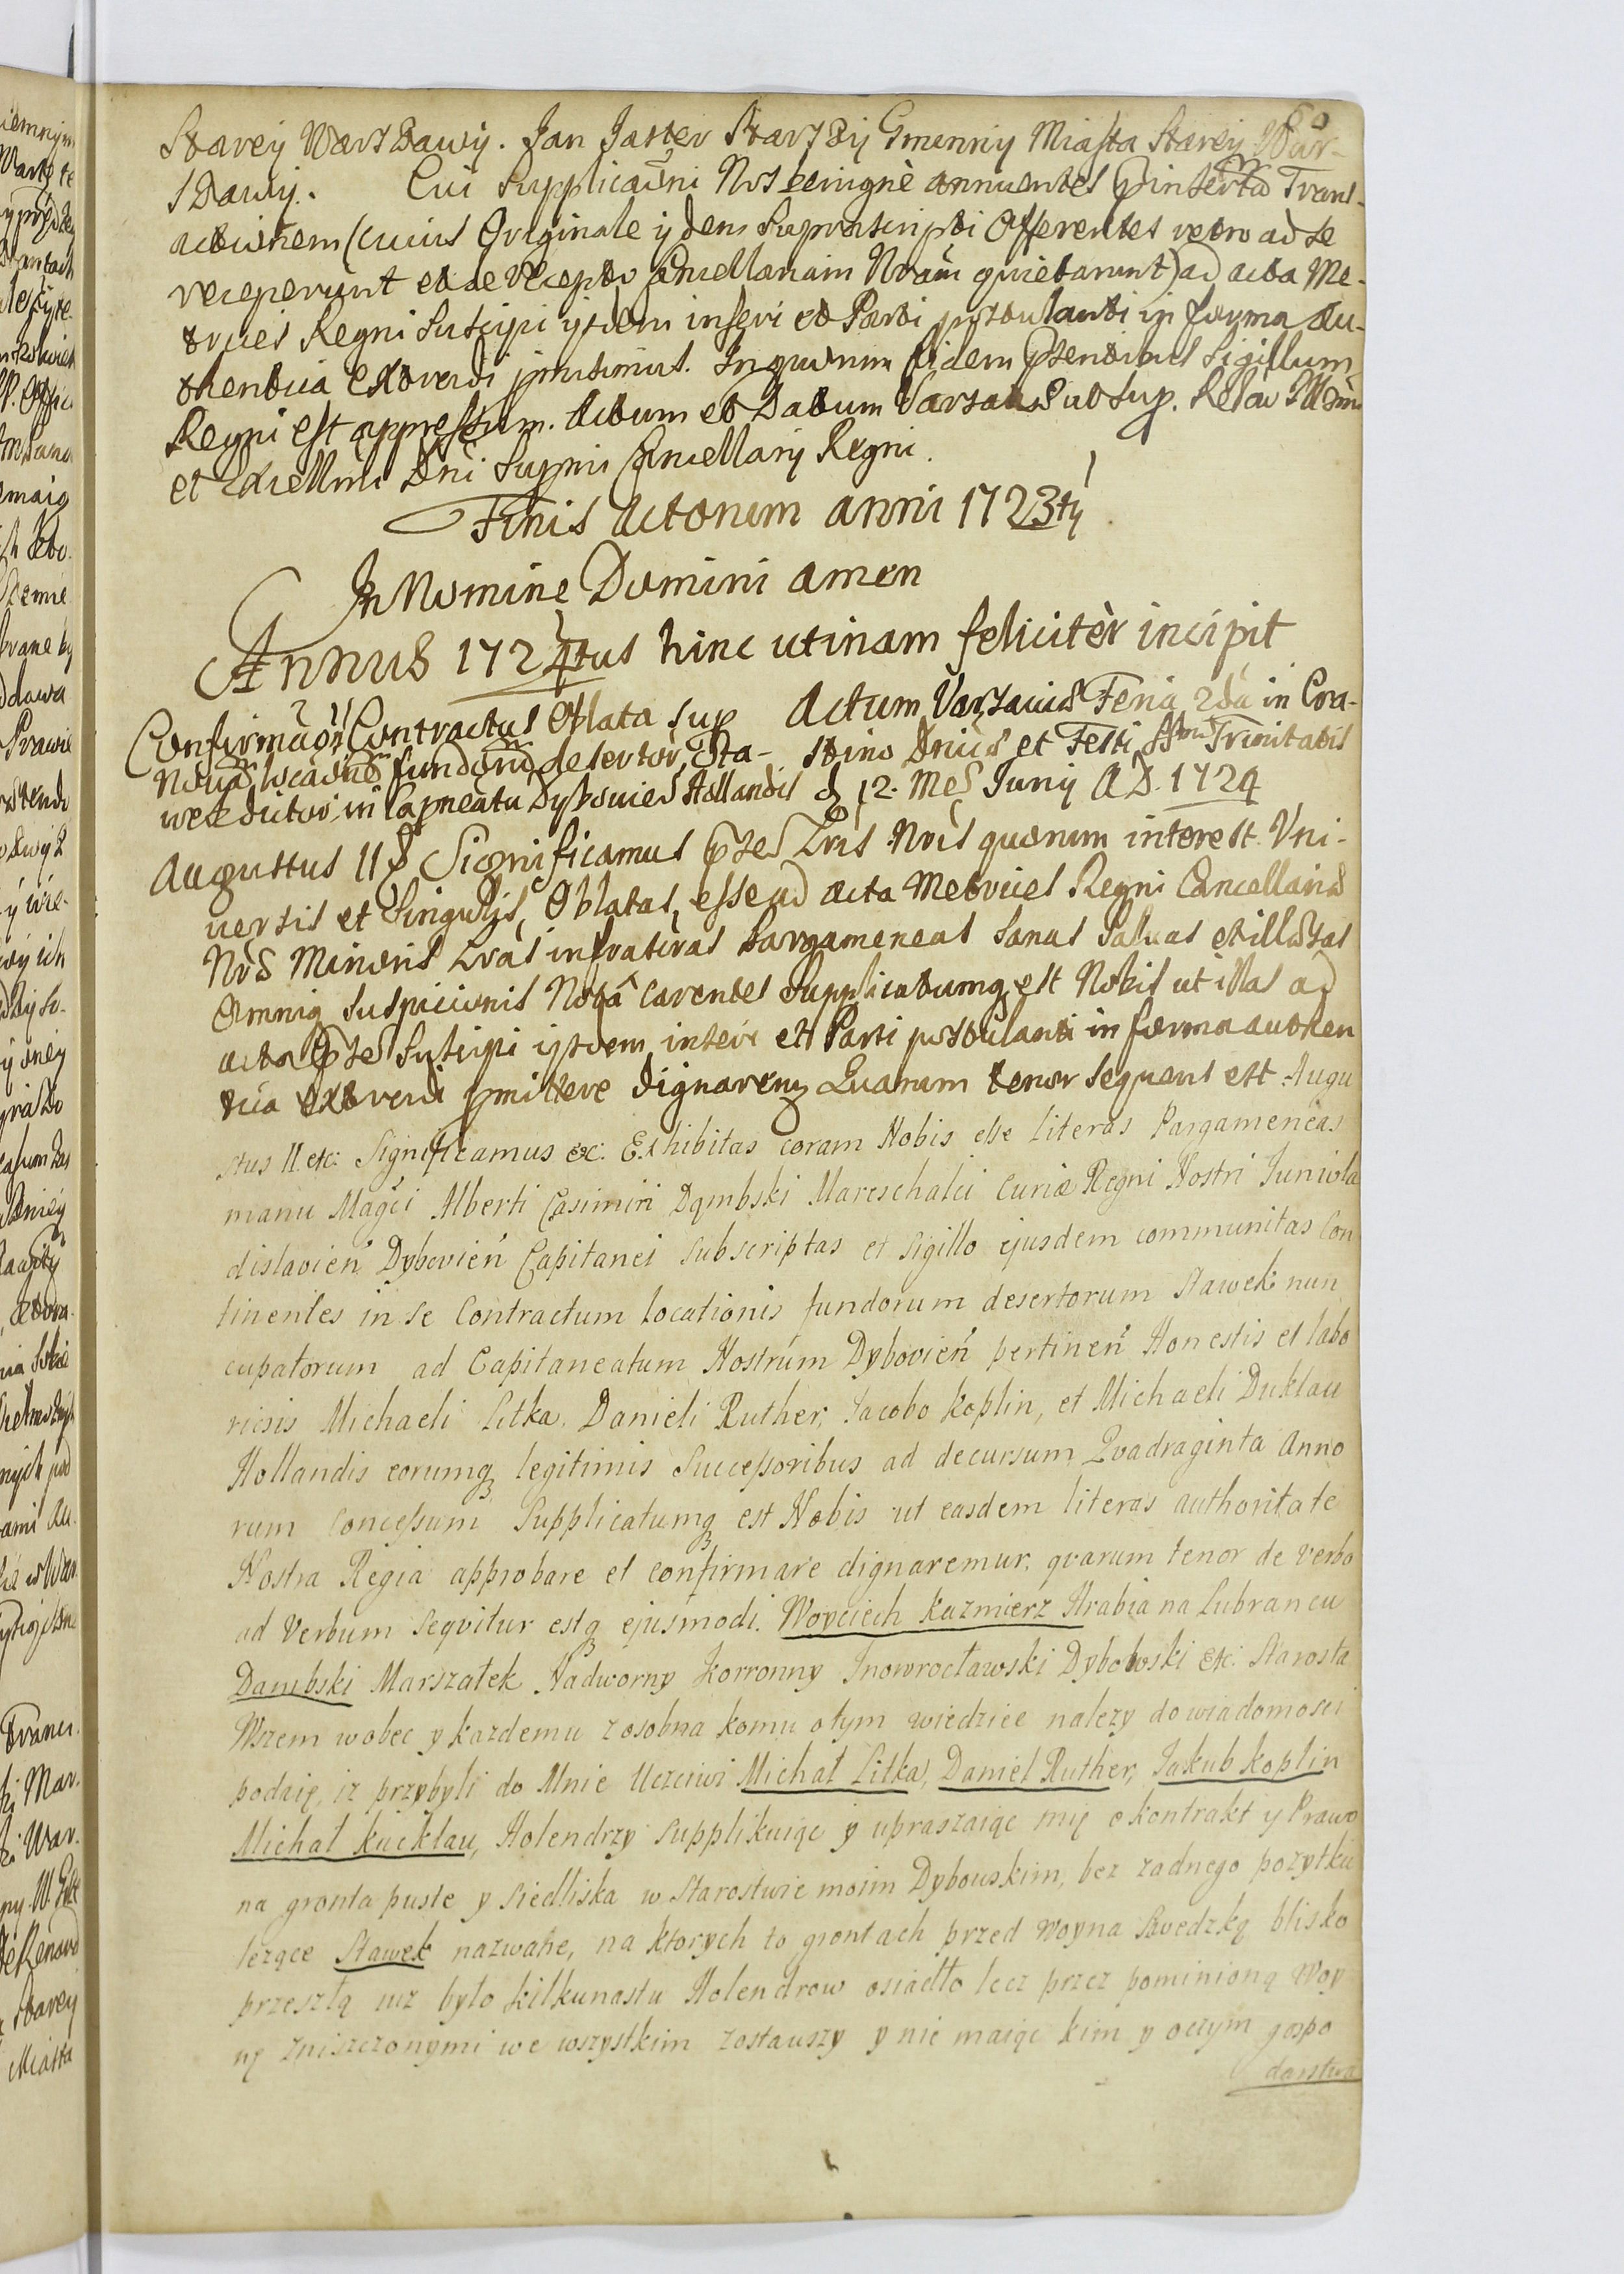 Starey Warszawy. Jan Jaster Starszy Gminny Miasta Starey War-
szawy. Cui Supplicaōni Nos benignè annuentes pinsertã Trans-
actionem (cuius Originale ijdem Suprascripti Offerentes retro ad se
receperunt et de recepto Cancellariam Nrām quietarunt) ad acta Me-
trices Regni Suscipi ijsdem inseri et Parti postulanti in forma au-
thentica extradi pmisimus. In quorum fidem pñtibus Sigillum
Regni est appressum. Actum et Datum Varsaviæ ut sup. Relaõ Illmi
et Excellmi Dni Supmi Cancellarij Regni.
Finis Actorum anni 1723tij
In Nomine Domini amen
Annus 1724tus hinc utinam felicitèr incipit
Confirmaõis Contractus Oblata sup
novæ locaõnis fundorũ desertor Sta-
wek dictor in Capneatu Dybovien Hollandis
Actum Varsaviæ Feria 2dâ in Cra-
stino Dnicæ et Festi SSmæ Trinitatis
d 12. Mes Junij A D. 1724
Augustus II ꝰ Significamus ptes Lras Nris quorum interest Uni-
versis et Singulis, Oblatas esse ad acta Metrices Regni Cancellariæ
Nræ Minoris Lras infrascras Pargameneas Sanas Salvas et illæsas
Omniq suspicionis Notâ carentes Supplicatumq est Nobis ut illas ad
acta ptes Suscipi ijsdem inseri et Parti postulanti in forma authen
tica extradi pmittere dignaremur Quarum tenor sequens est Augu
stus II. etc: Significamus &c: Exhibitas coram Nobis esse literas Pargameneas
manu Magci Alberti Casimiri Dąmbski Mareschalci Curiæ Regni Nostri Juniola
dislavień Dybovień Capitanei subscriptas et sigillo ejusdem communitas Con
tinentes in se Contractum locationis fundorum desertorum Stawek nun
cupatorum ad Capitaneatum Nostrum Dybovień pertineń Honestis et labo
riosis Michaeli Litka, Danieli Ruther, Jacobo Koplin, et Michaeli Duklau
Hollandis eorumq legitimis Successoribus ad decursum Quadraginta Anno
rum Concessum Supplicatumq est Nobis ut easdem literas authoritate
Nostra Regia approbare et confirmare dignaremur, quarum tenor de verbo
ad Verbum sequitur estq ejusmodi. Woyciech Kazmierz Hrabia na Lubrancu
Dambski Marszałek Nadworny Korronny Jnowrocławski Dybowski etc: Starosta
Wszem wobec y kazdemu zosobna komu otym wiedziec nalezy do wiadomosci
podaię, iz przybyli do Mnie Uczciwi Michał Litka, Daniel Ruther, Jakub Koplin
Michał Kucklau, Holendrzy supplikuiąc y upraszaiąc mię o kontrakt y Prawo
na gronta puste y siedliska w Starostwie moim Dybowskim, bez zadnego pozytku
lezące Stawek nazwane, na ktorych to grontach przed Woyna Szwedzką blisko
przeszłą iuz było kilkunastu Holendrow osiadło lecz przez pominioną Woy
nę zniszczonymi we wszystkim zostawszy y nie maiąc kim y oczym gospo
darstwa